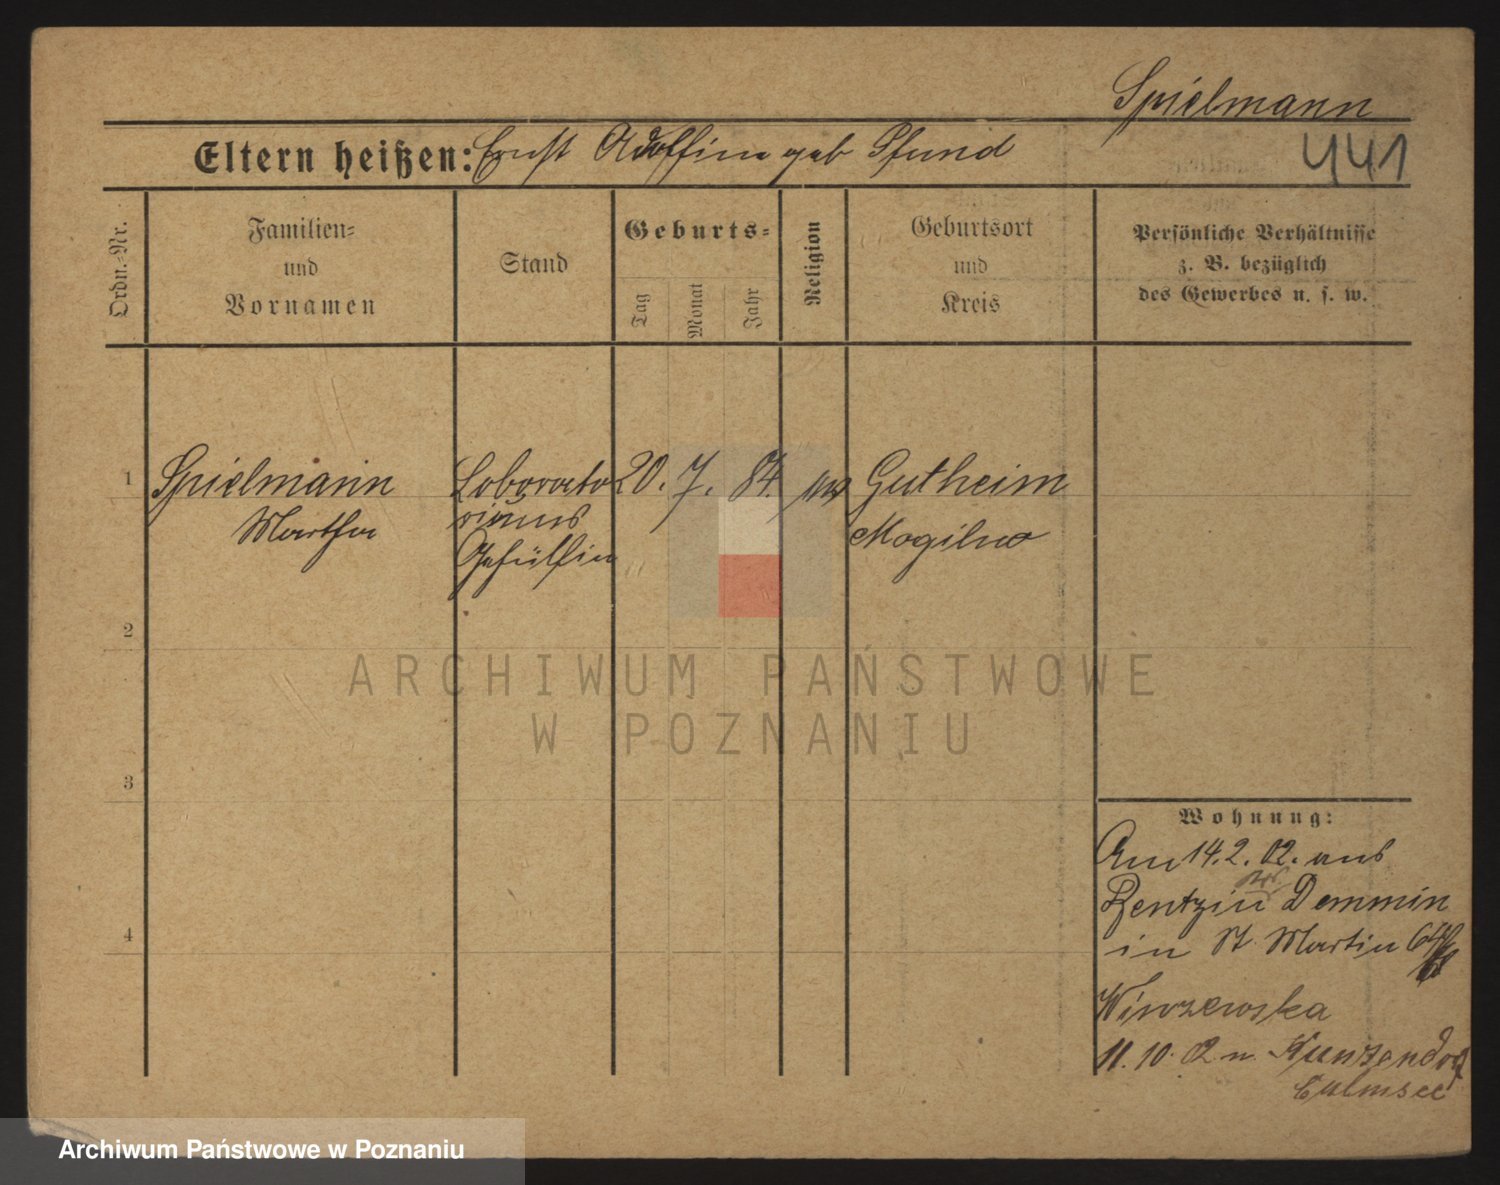 Spielmann
441
Eltern heißen: Ernst Adolfine geb Pfund
Ordn.-Nr.
Familien-
und
Vornamen
Stand
Geburts-
Tag
Monat
Jahr
Religion
Geburtsort
und
Kreis
Persönliche Verhältnisse
z. B. bezüglich
des Gewerbes u. s. w.
1 Spielmann Laborato 20. 7. 84. Gutheim
Martha riums Mogilno
Gehülfin
2
3
4
Wohnung:
Am 14. 2. 02. aus
Rentzin Demmin
in St. Martin 64
11. 10. 02 n. Kunzendorf
Culmsee
ARCHIWUM PAŃSTWOWE
W POZNANIU
Archiwum Państwowe w Poznaniu